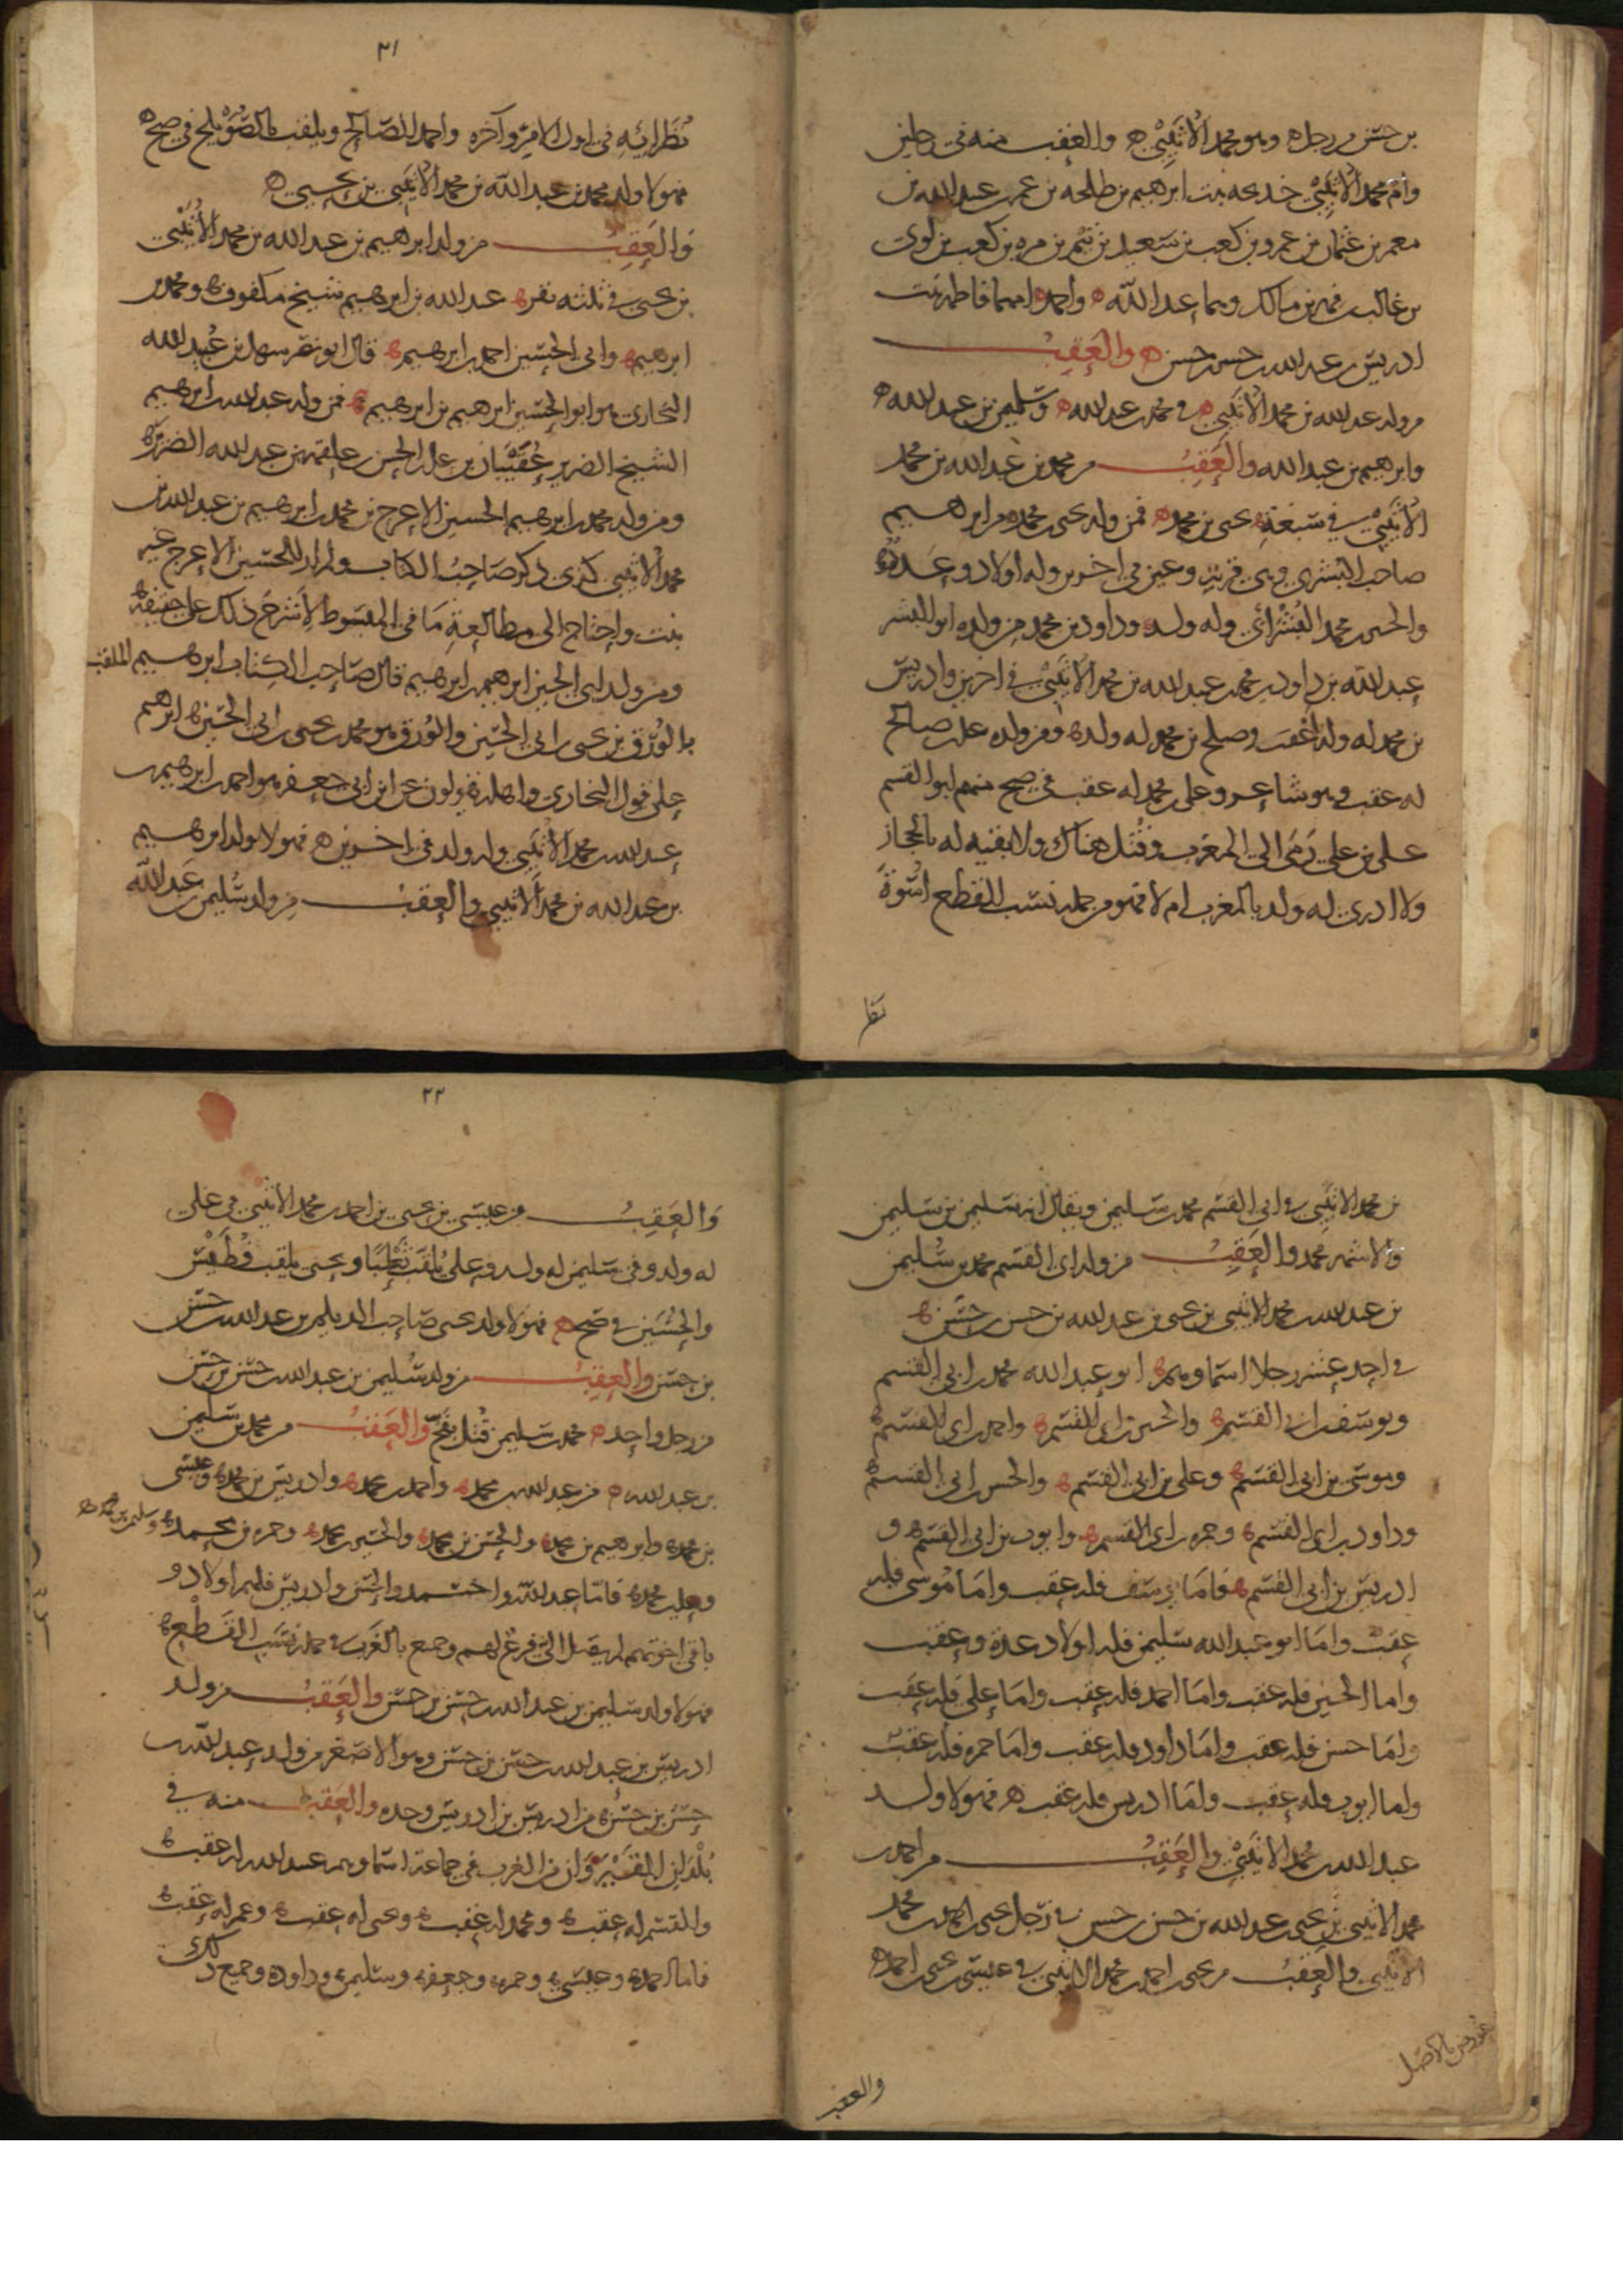 بن حسن من رجل وهو محمد الأثيبي والعقب منه في رجلين
وام محمد الأثيبي خديجه بنت ابرهيم بن طلحه بن عمر بن عبيد الله بن
معمر بن عثمان بن عمرو بن كعب بن سعيد بن تيم بن مره بن كعب بن لوى
بن غالب بن فهر بن مالك وهما عبد الله واحمد امهما فاطمه بنت
ادريس بن عبد الله بن حسن بن حسن والعقب
من ولد عبد الله بن محمد الأثيبي في محمد بن عبد الله وسليمن بن عبد الله
وابرهيم بن عبد الله والعقب من محمد بن عبد الله بن محمد
الأثيبي في سبعة يحيى بن محمد فمن ولد يحيى بن محمد من ابرهيم
صاحب البشرى وهي قرية وعين في اخرين وله اولاد وعدد
والحسن بن محمد وله ولد وداود بن محمد من ولده ابو البشر
عبد الله بن داود بن محمد بن عبد الله بن محمد الأثيبي في اخرين وادريس
بن محمد له ولد اعقب وصلح بن محمد له ولد ومن ولده على بن صالح
له عقب وهو شاعر وعلى بن محمد له عقب في صح منهم ابو القسم
على بن على رمى الى المغرب وقتل هناك ولا بقيه له بالحجاز
ولا ادرى له ولد بالمغرب ام لا فهو من جمله نسب القطع اسوة
٢١
نظرائه في اول الامر وآخره واحمد الصالح ويلقب بالصويلح في صح
فهولا ولد محمد بن عبد الله بن محمد الأثيبي بن يحيى
والعقب من ولد ابرهيم بن عبد الله بن محمد الأثيبي
بن يحيى في ثلثه نفر عبد الله بن ابرهيم شيخ مكفوف ومحمد بن
ابرهيم وابى الحسين احمد بن ابرهيم قال ابو نصر سهل بن عبد الله
البخارى هو ابو الحسين ابرهيم بن ابرهيم فمن ولد عبد الله بن ابرهيم
الشيخ الضرير بن على بن الحسن بن علقمه بن عبد الله الضرير
ومن ولد محمد بن ابرهيم الحسين الاعرج بن محمد بن ابرهيم بن عبد الله بن
محمد الأثيبي كذى ذكر صاحب الكتاب ولم ار للحسين الاعرج غير
بنت واحتاج الى مطالعة ما في المبسوط لأشرح ذلك على حقيقته
ومن ولد ابى الحسين ابرهيم بن ابرهيم قال صاحب الكتاب ابرهيم الملقب
بالورق بن يحيى بن ابى الحسين والورق هو محمد بن يحيى بن ابى الحسين ابرهيم
على قول البخارى واهله يقولون عن ابن ابى جعفر هو احمد بن ابرهيم بن
عبد الله بن محمد الأثيبي وله ولد في اخرين فهولا ولد ابرهيم
بن عبد الله بن محمد الأثيبي والعقب من ولد سليمن بن عبد الله
نظرا
بن محمد الأثيبي في ابى القسم محمد بن سليمن ويقال انه سليمن بن سليمن
والاشهر محمد والعقب من ولد ابى القسم محمد بن سليمن
بن عبد الله بن محمد الأثيبي بن يحيى بن عبد الله بن حسن بن حسن
في احد عشر رجلا اسماوهم ابو عبد الله محمد بن ابى القسم
ويوسف بن ابى القسم والحسين بن ابى القسم واحمد بن ابى القسم
وموسى بن ابى القسم وعلى بن ابى القسم والحسن بن ابى القسم
وداود بن ابى القسم وحمزه بن ابى القسم وايوب بن ابى القسم و
ادريس بن ابى القسم فاما يوسف فله عقب واما موسى فله
عقب واما ابو عبد الله سليمن فله اولاد عدة وعقب
واما الحسين فله عقب واما احمد فله عقب واما على فله عقب
واما حسن فله عقب واما داود فله عقب واما حمزه فله عقب
واما ايوب فله عقب واما ادريس فله عقب فهولا ولد
عبد الله بن محمد الأثيبي والعقب من احمد بن
محمد الأثيبي بن يحيى بن عبد الله بن حسن بن حسن في رجل يحيى بن احمد بن محمد
الأثيبي والعقب من يحيى بن احمد بن محمد الأثيبي في عيسى بن يحيى بن احمد
عورض بالاصل
والعقب
٢٢
والعقب من عيسى بن يحيى بن احمد بن محمد الأثيبي في على
له ولد وفي سليمن له ولد وعلى يلقب ثعلبا ويحيى يلقب
والحسين في صح فهولا ولد يحيى صاحب الديلم بن عبد الله بن حسن
بن حسن والعقب من ولد سليمن بن عبد الله بن حسن بن حسن
من رجل واحد محمد بن سليمن قتل بفخ والعقب من محمد بن سليمن
بن عبد الله من عبد الله بن محمد واحمد بن محمد وادريس بن محمد وعيسى
بن محمد وابرهيم بن محمد والحسن بن محمد والحسين بن محمد وحمزه بن محمد وسليمن بن محمد
وعلى بن محمد فاما عبد الله واحمد والحسن وادريس فلهم اولاد و
باقى اخوتهم لم يصل الى فرع لهم وجميع بالغرب في جمله نسب القطع
فهولا ولد سليمن بن عبد الله بن حسن بن حسن والعقب من ولد
ادريس بن عبد الله بن حسن بن حسن وهو الاصغر من ولد عبد الله بن
حسن بن حسن من ادريس بن ادريس وحده والعقب منه في
بلدان من الغرب في جماعة اسماوهم عبد الله له عقب
والقسم له عقب ومحمد له عقب ويحيى له عقب وعمر له عقب
فاما احمد وعيسى وحمزه وجعفر وسليمن وداود وجميع ذلك